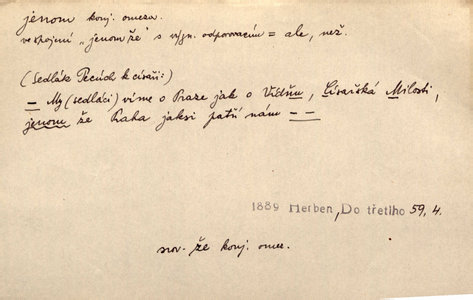 jenom konj. omeza.
ve spojení „jenom že" s význ. odporovacím = ale, než.
(Sedlák Pecúch k císaři:)
– My (sedláci) víme o Praze jak o Vídňu, Císařská Milosti,
jenom že Praha jaksi patří nám – –
1889 Herben, Do třetího 59, 4.
srov. že konj. omez.